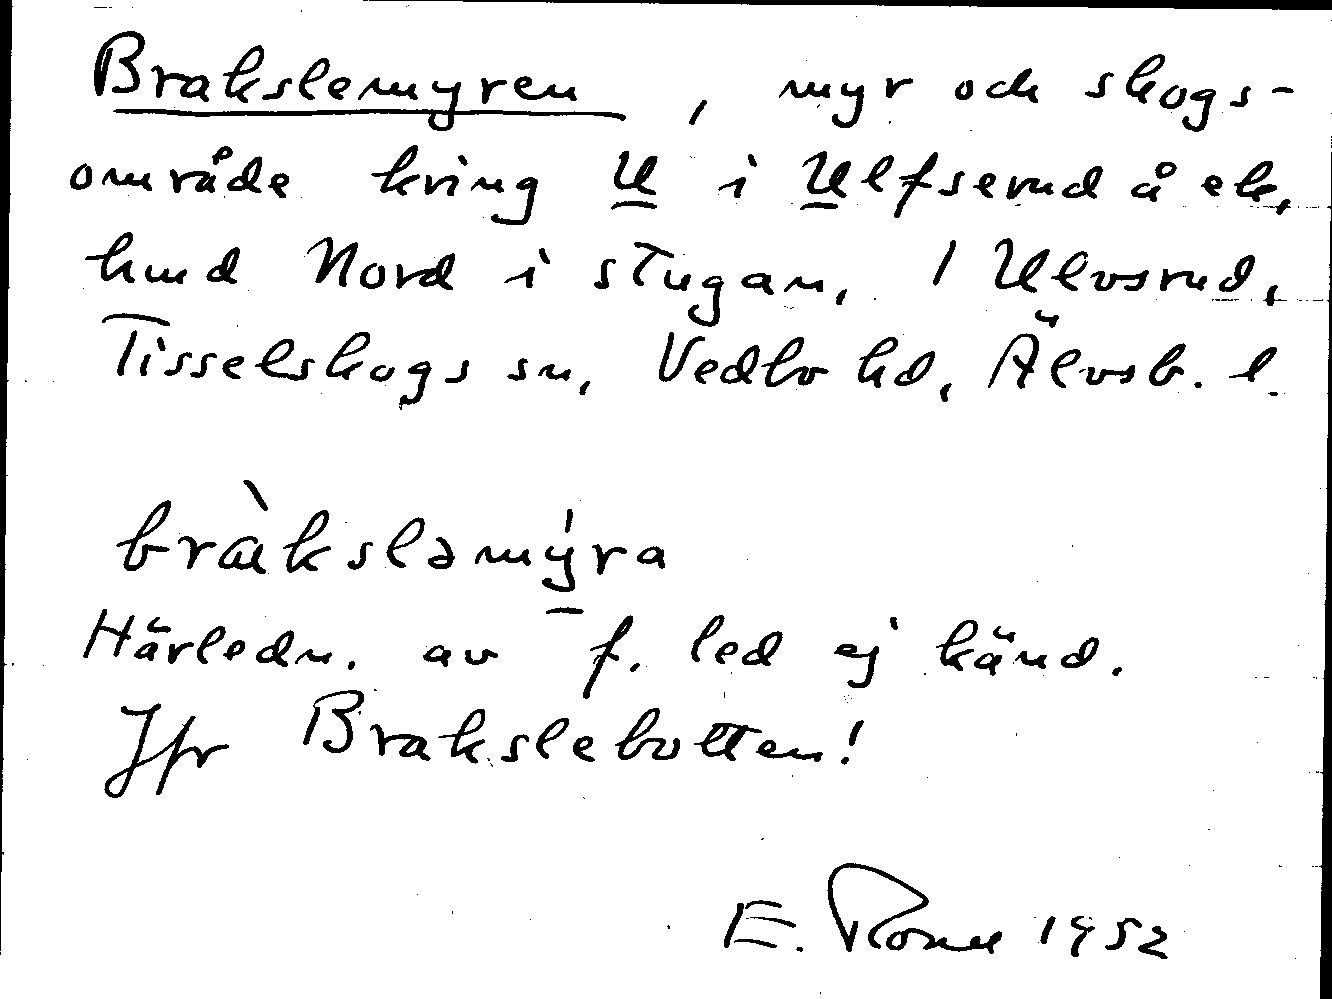 Brakslemyren, myr och skogs-
område kring U i Ulfserud å ek.
hmd Nord i stugan, / Ulvsrud,
Tisselskogs sn, Vedbo hd, Älvsb. l.
bràksləmýra
Härledn. av f. led ej känd.
Jfr Brakslebotten!
E. 1952